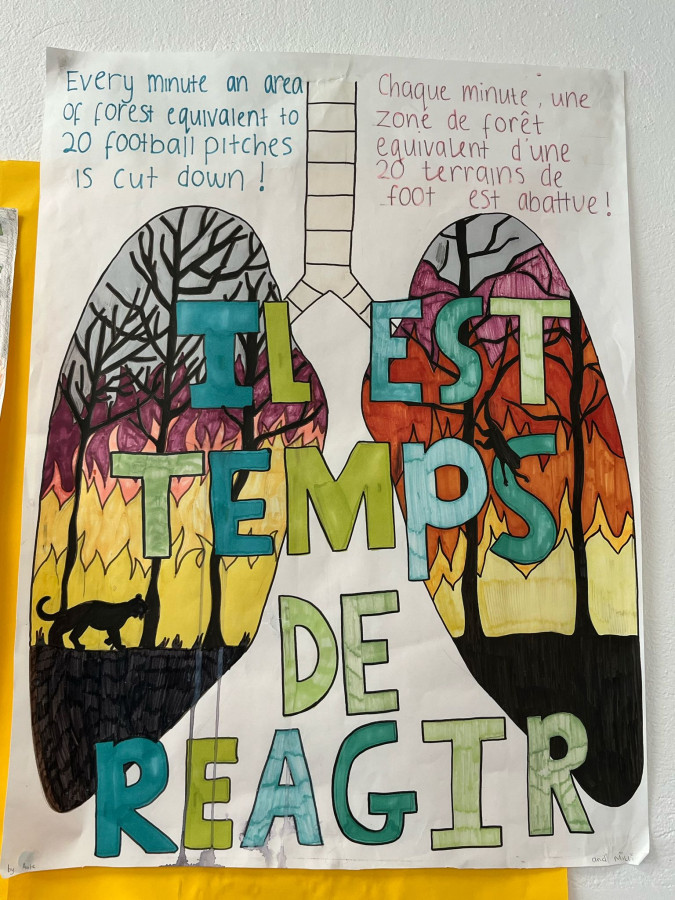 Every minute an area
of forest equivalent to
20 football pitches
is cut down !
Chaque minute, une
zone de forêt
equivalent d'une
20 terrains de
foot est abattue !
IL EST
TEMPS
DE
REAGIR
by
and